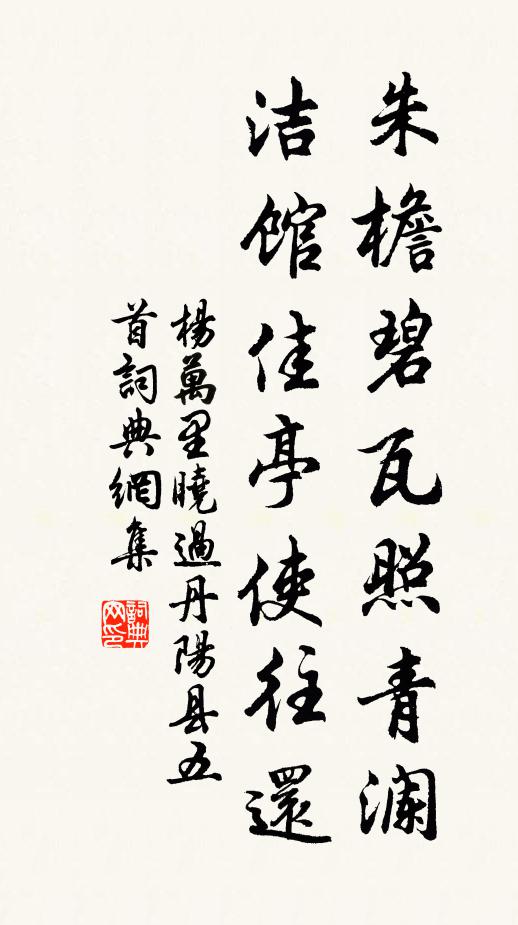 朱檐碧瓦照青澜
洁館佳亭使往還
楊萬里曉過丹陽县五
首詞典網集
詞典网印